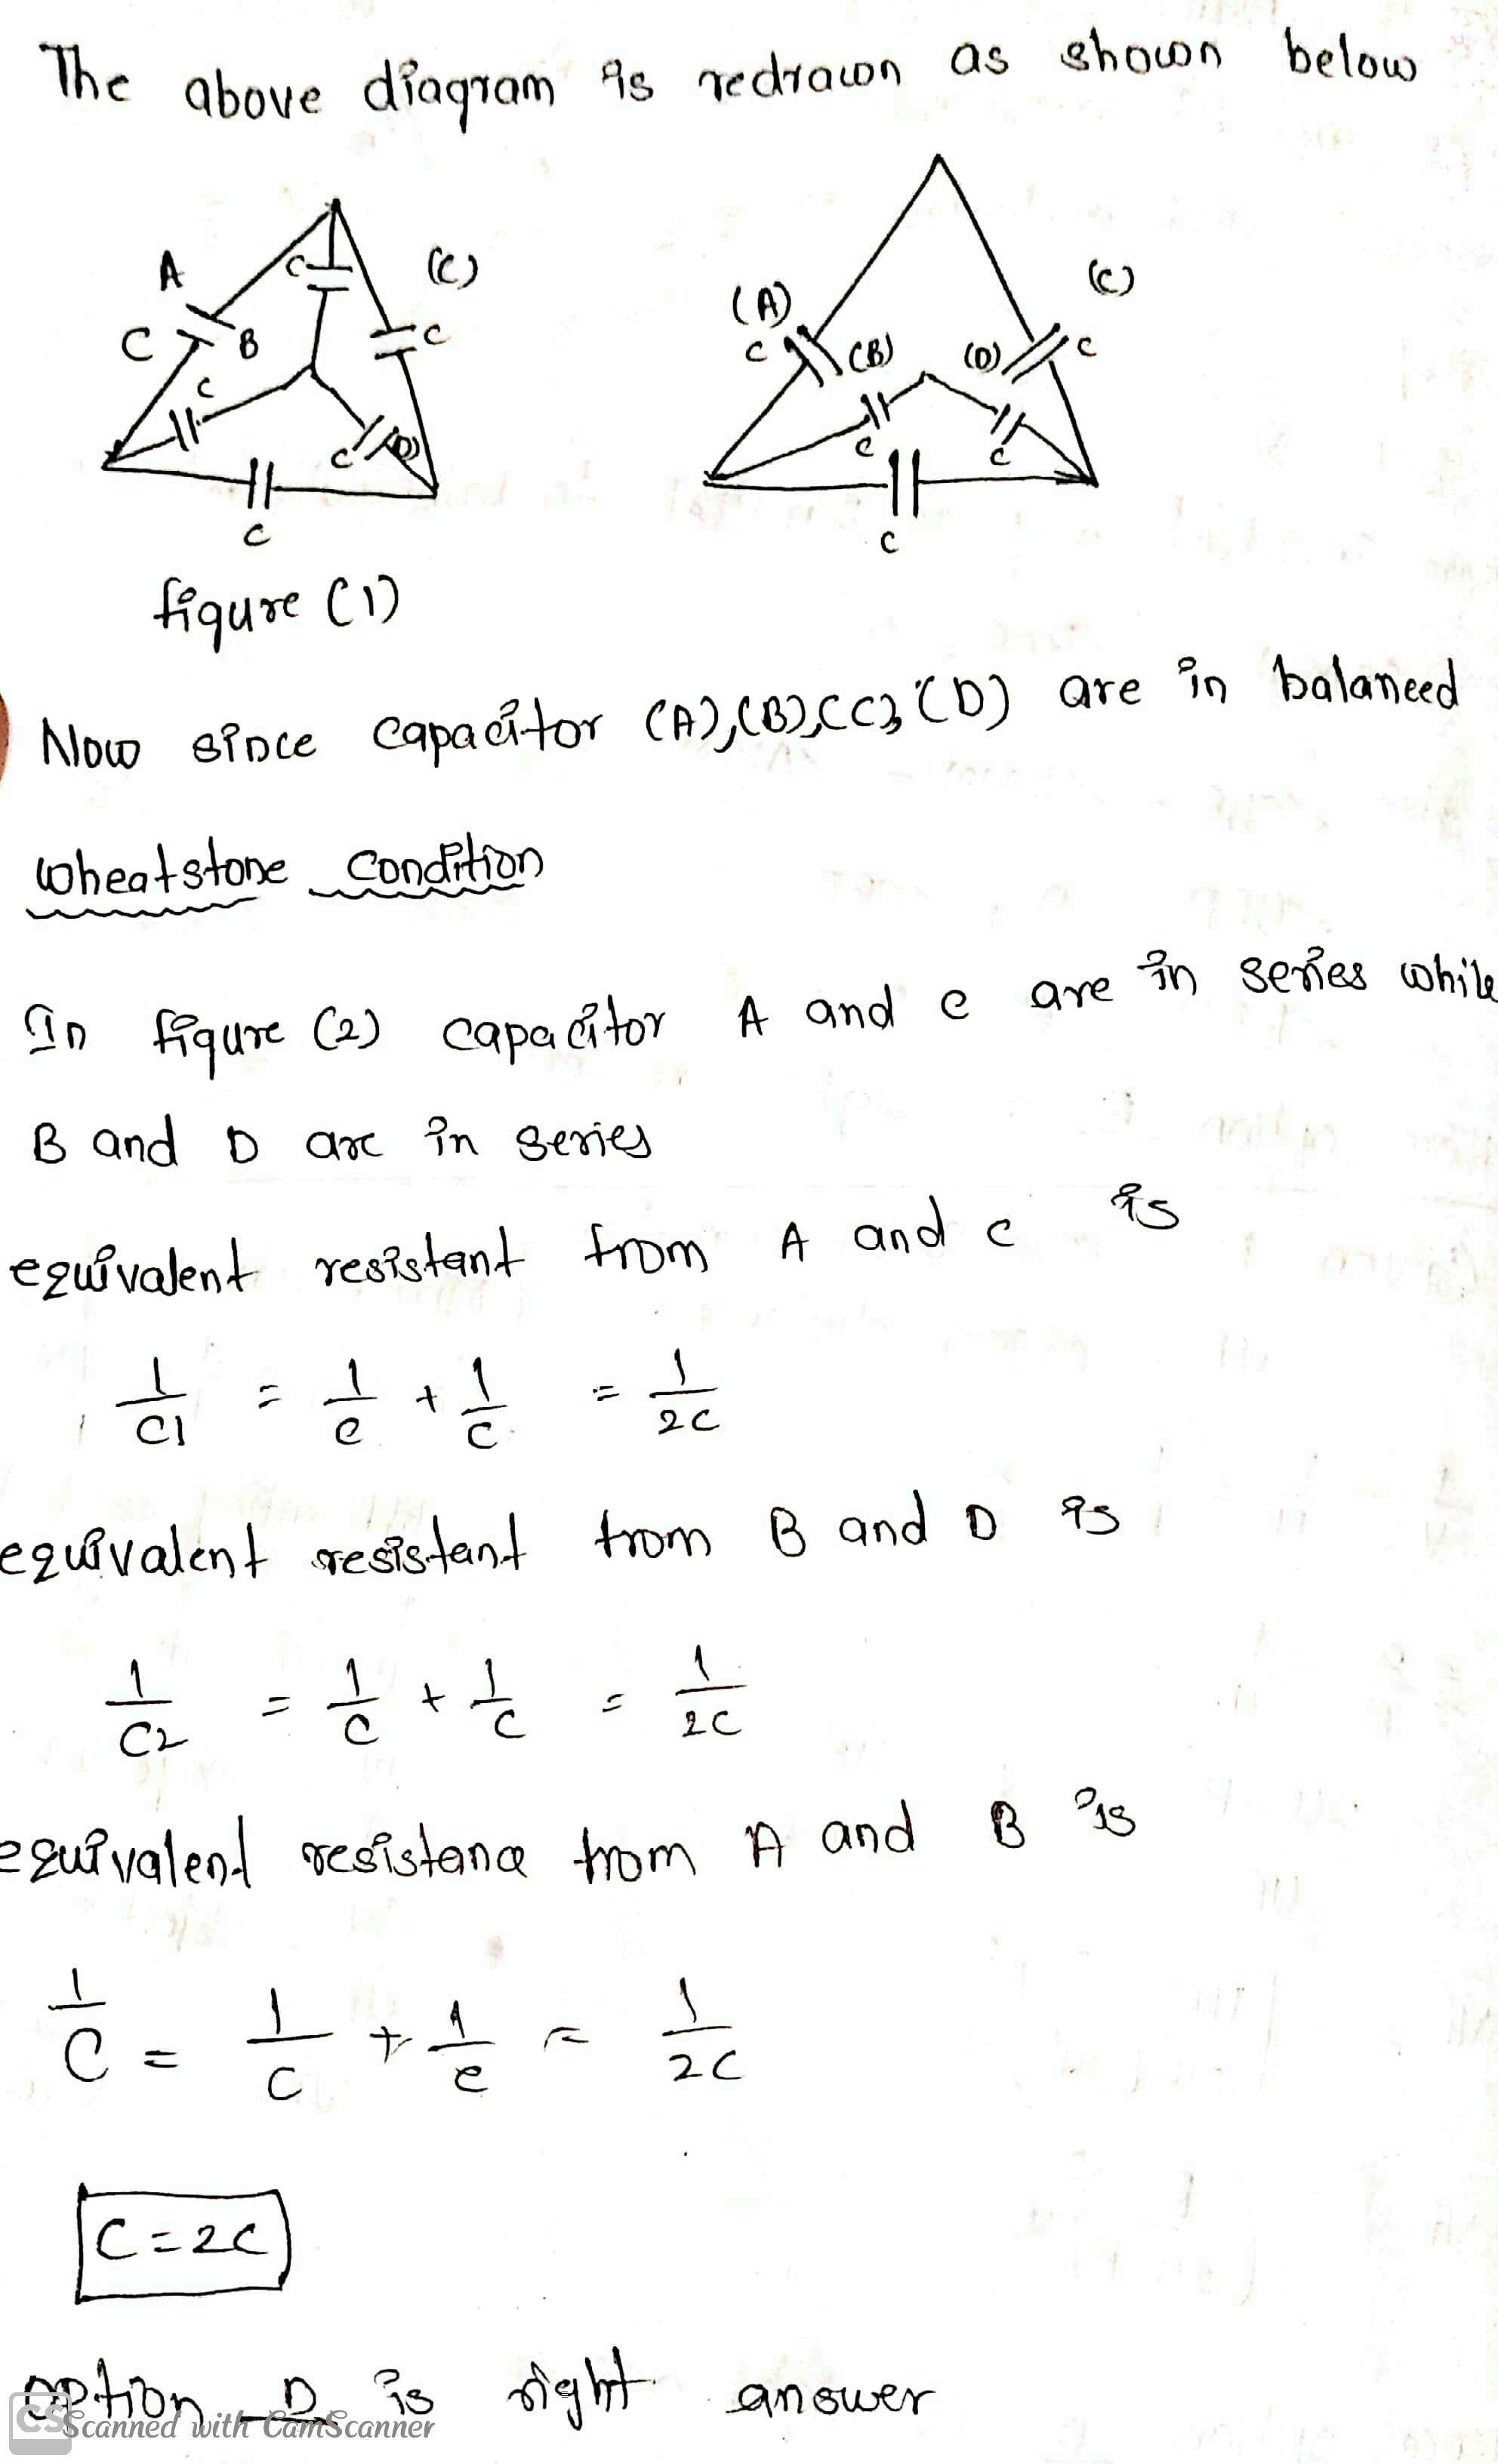 The above diagram is redrawn as shown below
A
C
(C)
C
B
C
C
C (D)
C
(A)
C
(B)
(D)
(C)
C
C
C
C
figure (1)
Now since capacitor (A),(B),(C),(D) are in balaneed
wheatstone condition
In figure (2) capacitor A and c are in series while
B and D are in series
equivalent resistant from A and c is
1/C1 = 1/C + 1/C = 1/2C
equivalent resistant from B and D is
1/C2 = 1/C + 1/C = 1/2C
equivalent resistance from A and B is
1/C = 1/C + 1/C = 1/2C
C = 2C
option D is right answer
CS Scanned with CamScanner